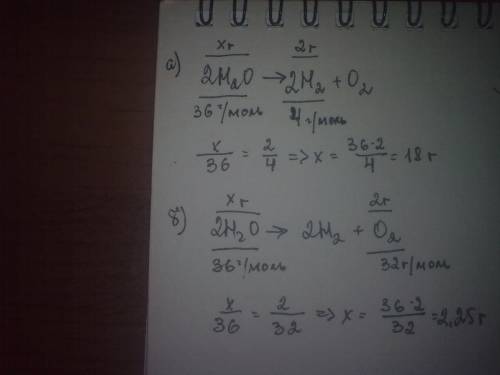 а)
xг 2г
2H₂O → 2H₂ + O₂
36 г/моль 4 г/моль
x/36 = 2/4 => x = 36·2/4 = 18 г
б)
xг 2г
2H₂O → 2H₂ + O₂
36 г/моль 32 г/моль
x/36 = 2/32 => x = 36·2/32 = 2,25 г